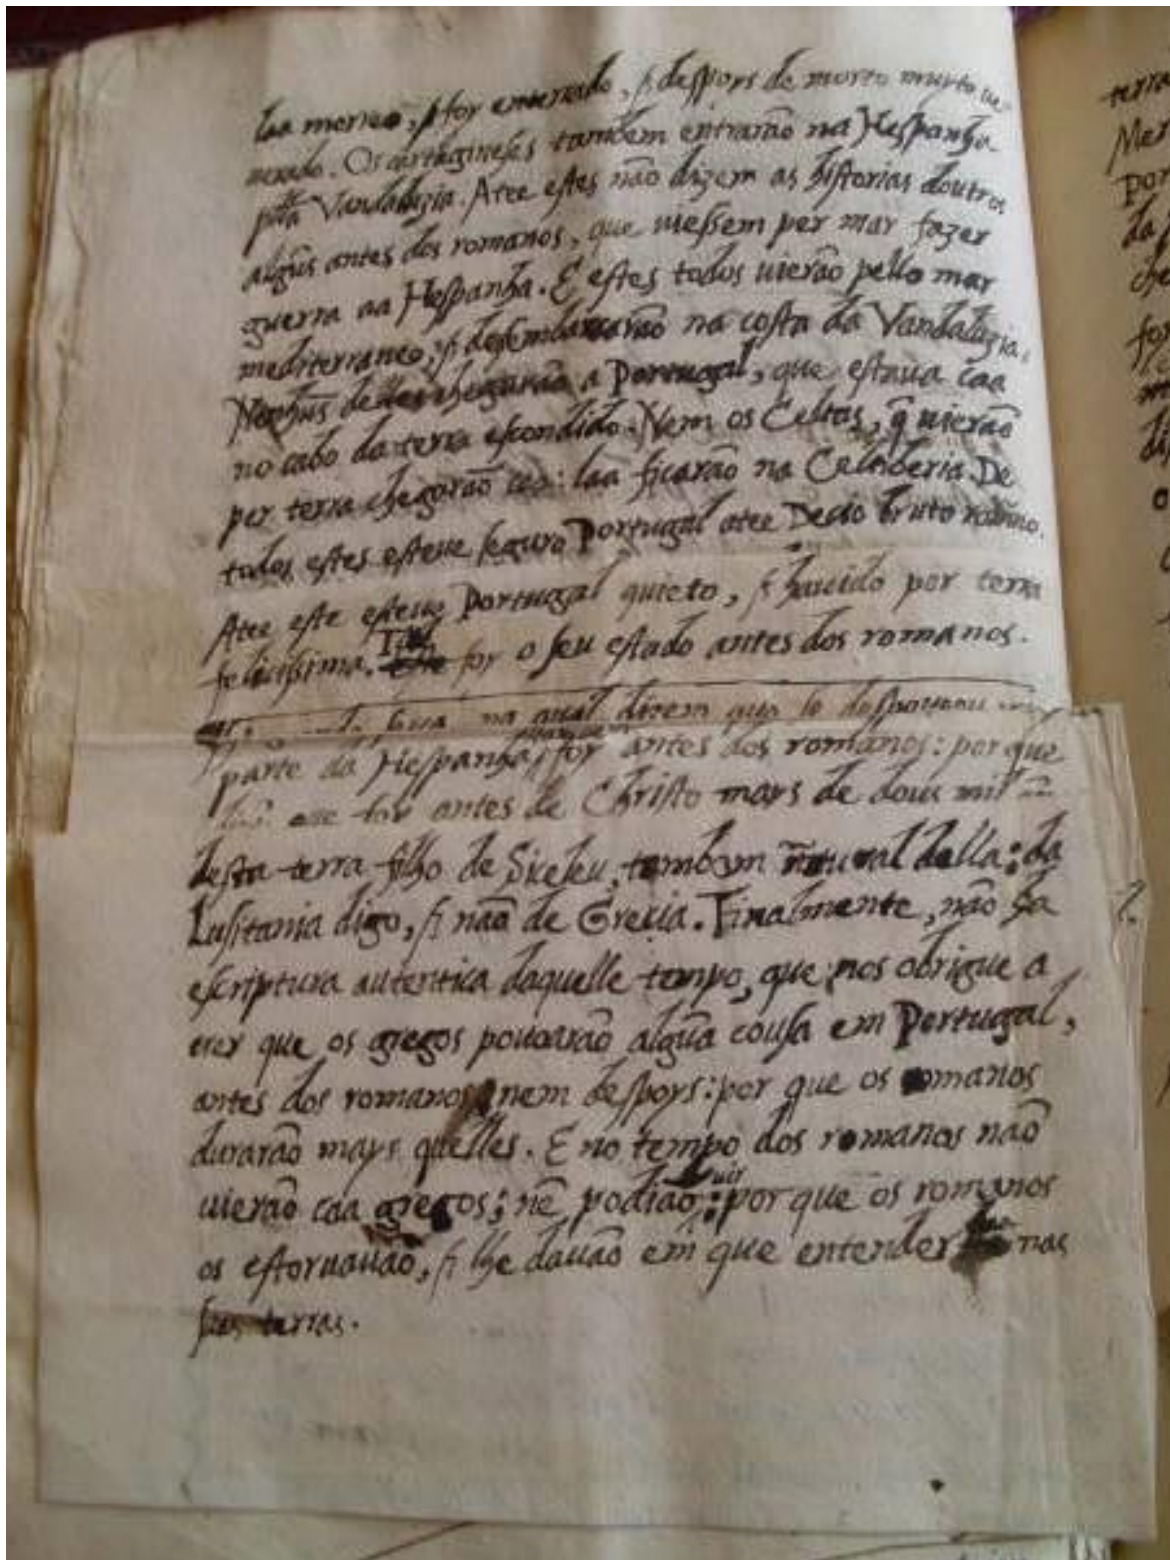 laa morreo, & foy enterrado, & despoys de morto muyto ue-
nerado. Os cartagineses tambem entrarão na Hespanha
pella Vandaluzia. Atee estes não dizem as historias doutros
algũs antes dos romanos, que uiessem per mar fazer
guerra aa Hespanha. E estes todos uierão pello mar
mediterraneo, & desembarcarão na costa da Vandaluzia.
Nenhũs delles chegarão a Portugal, que estaua caa
no cabo da terra escondido. Nem os Celtas, q̃ uierão
per terra chegarão caa: laa ficarão na Celtiberia. De
todos estes esteue seguro Portugal atee Decio bruto romano.
Atee este esteue Portugal quieto, & hauido por terra
felicissima. Tal foy o seu estado antes dos romanos.
na qual dizem que se despouou
parte da Hespanha, foy antes dos romanos: por que
foy antes de Christo mays de dous mil
desta terra filho de Siceleu, tambem natural della: da
Lusitania digo, & não de Grecia. Finalmente, não ha
escriptura autentica daquelle tempo, que nos obrigue a
crer que os gregos pouoarão algũa cousa em Portugal,
antes dos romanos, nem despoys: por que os romanos
durarão mays quelles. E no tempo dos romanos não
uierão caa gregos; nẽ podião uir: por que os romanos
os estoruauão, & lhe dauão em que entender nas
suas terras.